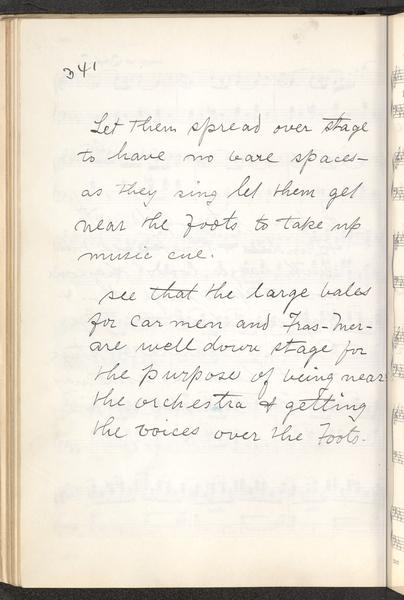 D41
Let them spread over stage
to have no bare spaces-
as they sing let them get
near the foots to take up
music cue.
see that the large bales
for Carmen and Fras-Mer-
are well down stage for
the purpose of being near
the orchestra & getting
the voices over the Foots.